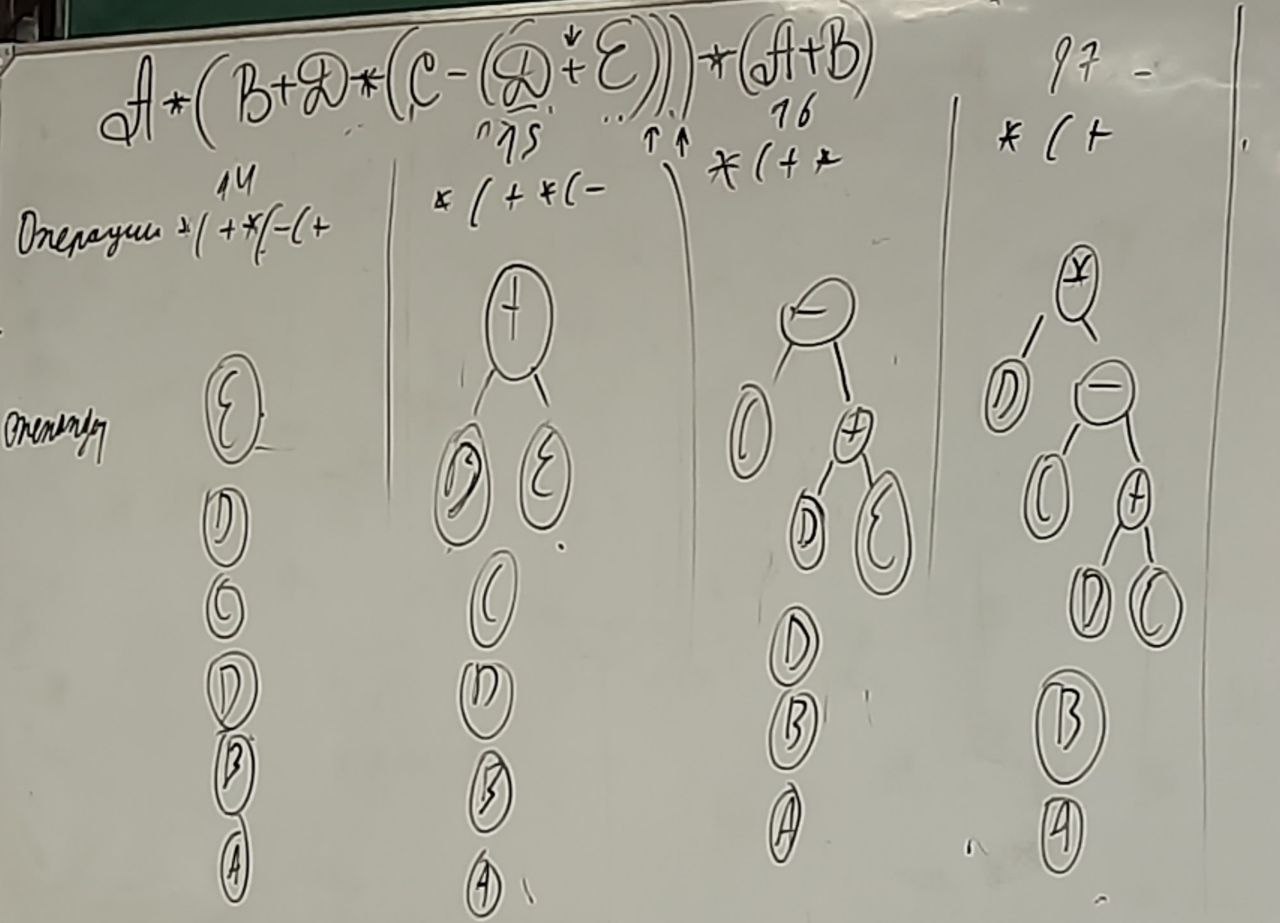 A*(B+D*(C-(D+E)))*(A+B)
14
Операции *(+*(-(+
Операнды
E
D
C
D
B
A
15
*(+*(-
+
D E
C
D
B
A
16
*(+*
-
C +
D E
D
B
A
17
*(+
*
D -
C +
D C
B
A